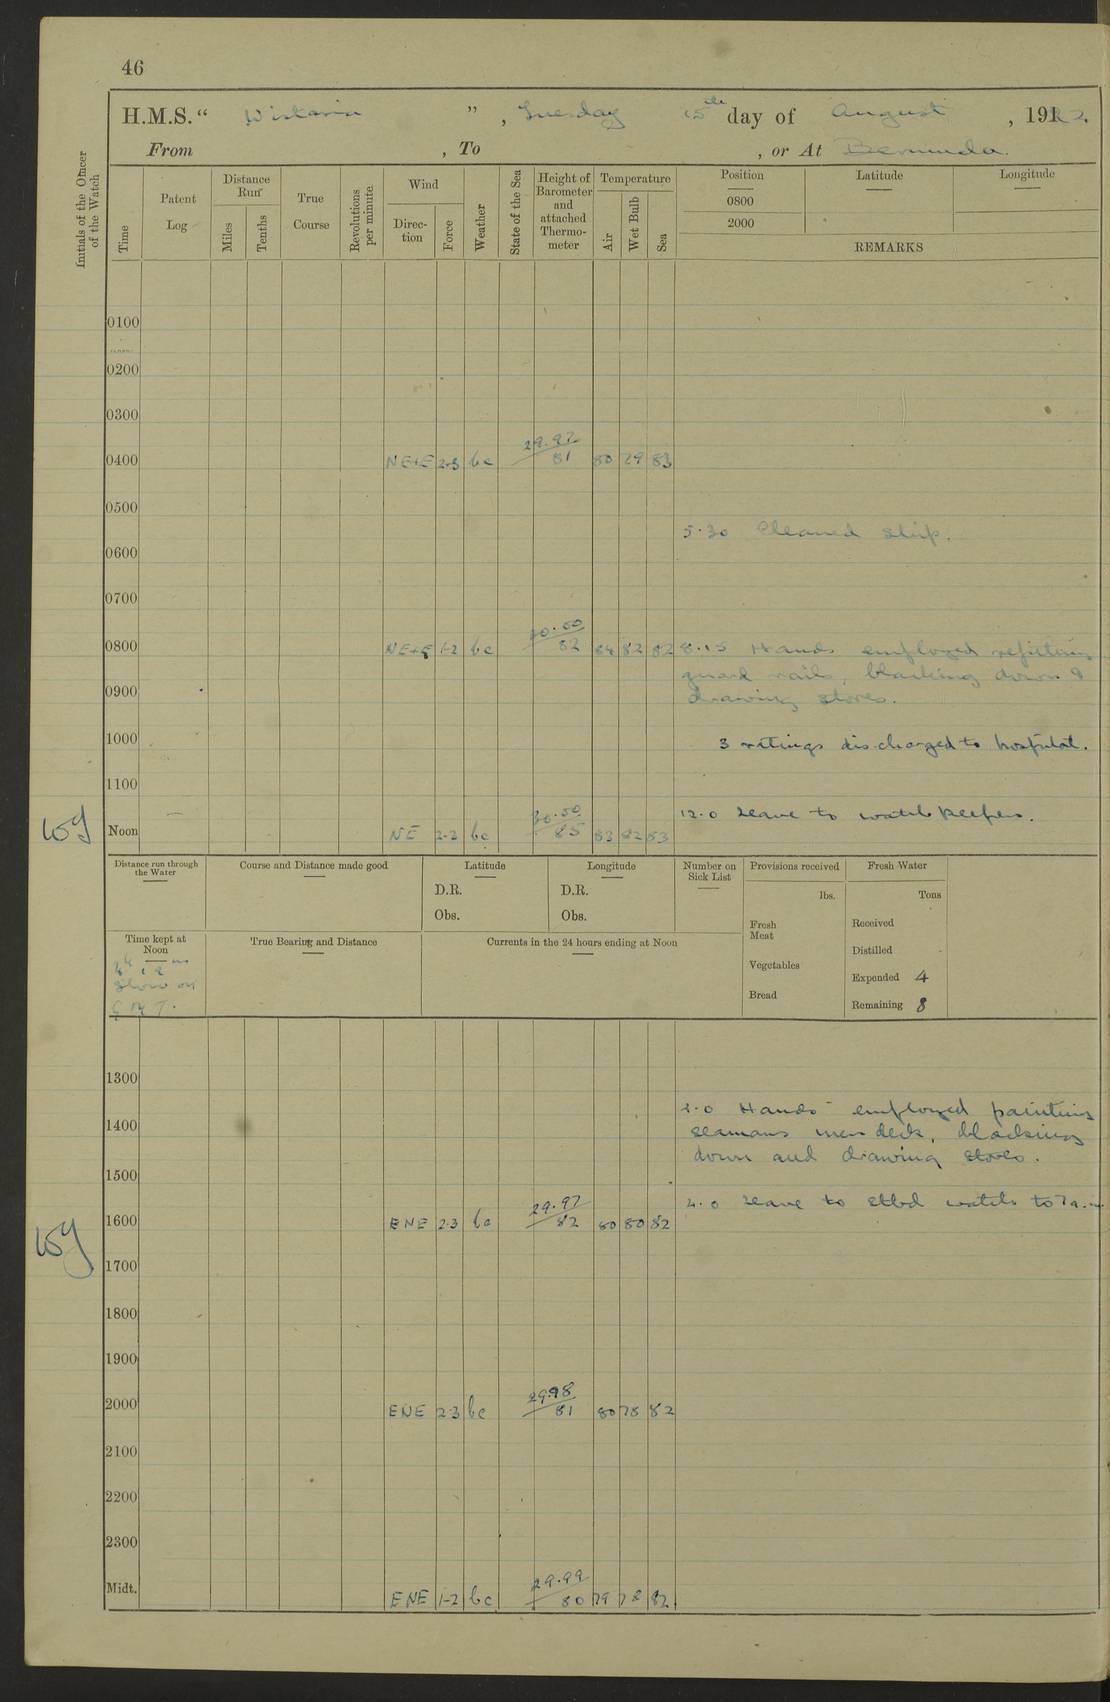 46
H.M.S. “ Wistaria ” , Tuesday 15th day of August , 1922.
From , To , or At Bermuda.
Initials of the Officer of the Watch
Time
Patent Log
Distance Run
Miles
Tenths
True Course
Revolutions per minute
Wind
Direc-tion
Force
Weather
State of the Sea
Height of Barometer and attached Thermo-meter
Temperature
Air
Wet Bulb
Sea
Position Latitude Longitude
0800
2000
REMARKS
0100
0200
0300
0400 NE+E 2-3 bc 29.97 81 80 79 83
0500
5.30 Cleaned ship.
0600
0700
0800 NE+E 1-2 bc 30.00 82 84 82 82 8.15 Hands employed refitting
guard rails, blacking down &
0900
drawing stores.
1000 3 ratings discharged to hospital.
1100
12.0 Leave to watchkeepers.
Noon NE 2-2 bc 30.00 85 83 82 83
Distance run through the Water
Course and Distance made good
Latitude
D.R.
Obs.
Longitude
D.R.
Obs.
Number on Sick List
Provisions received
lbs.
Fresh Meat
Vegetables
Bread
Fresh Water
Tons
Received
Distilled
Expended 4
Remaining 8
Time kept at Noon
slow on
G.M.T.
True Bearing and Distance
Currents in the 24 hours ending at Noon
1300
2.0 Hands employed painting
1400 seamans mess deck, blacking
down and drawing stores.
1500
4.0 Leave to stbd watch to 7 a.m.
1600 ENE 2.3 bc 29.97 82 80 80 82
1700
1800
1900
2000 ENE 2.3 bc 29.98 81 80 78 82
2100
2200
2300
Midt. ENE 1-2 bc 29.99 80 79 78 82